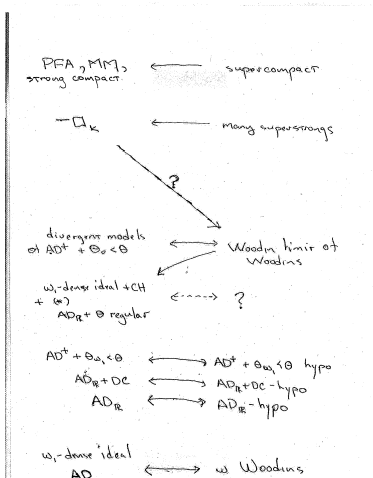 PFA, MM, ← supercompact
strong compact
¬□κ ← many superstrongs
?
divergent models
of AD⁺ + Θ₀ < Θ ↔ Woodin limit of
Woodins
ω₁-dense ideal + CH
+ (*) ⇠⇢ ?
AD_ℝ + Θ regular
AD⁺ + Θ_ω₁ < Θ ↔ AD⁺ + Θ_ω₁ < Θ hypo
AD_ℝ + DC ↔ AD_ℝ + DC - hypo
AD_ℝ ↔ AD_ℝ - hypo
ω₁-dense ideal
AD ↔ ω Woodins